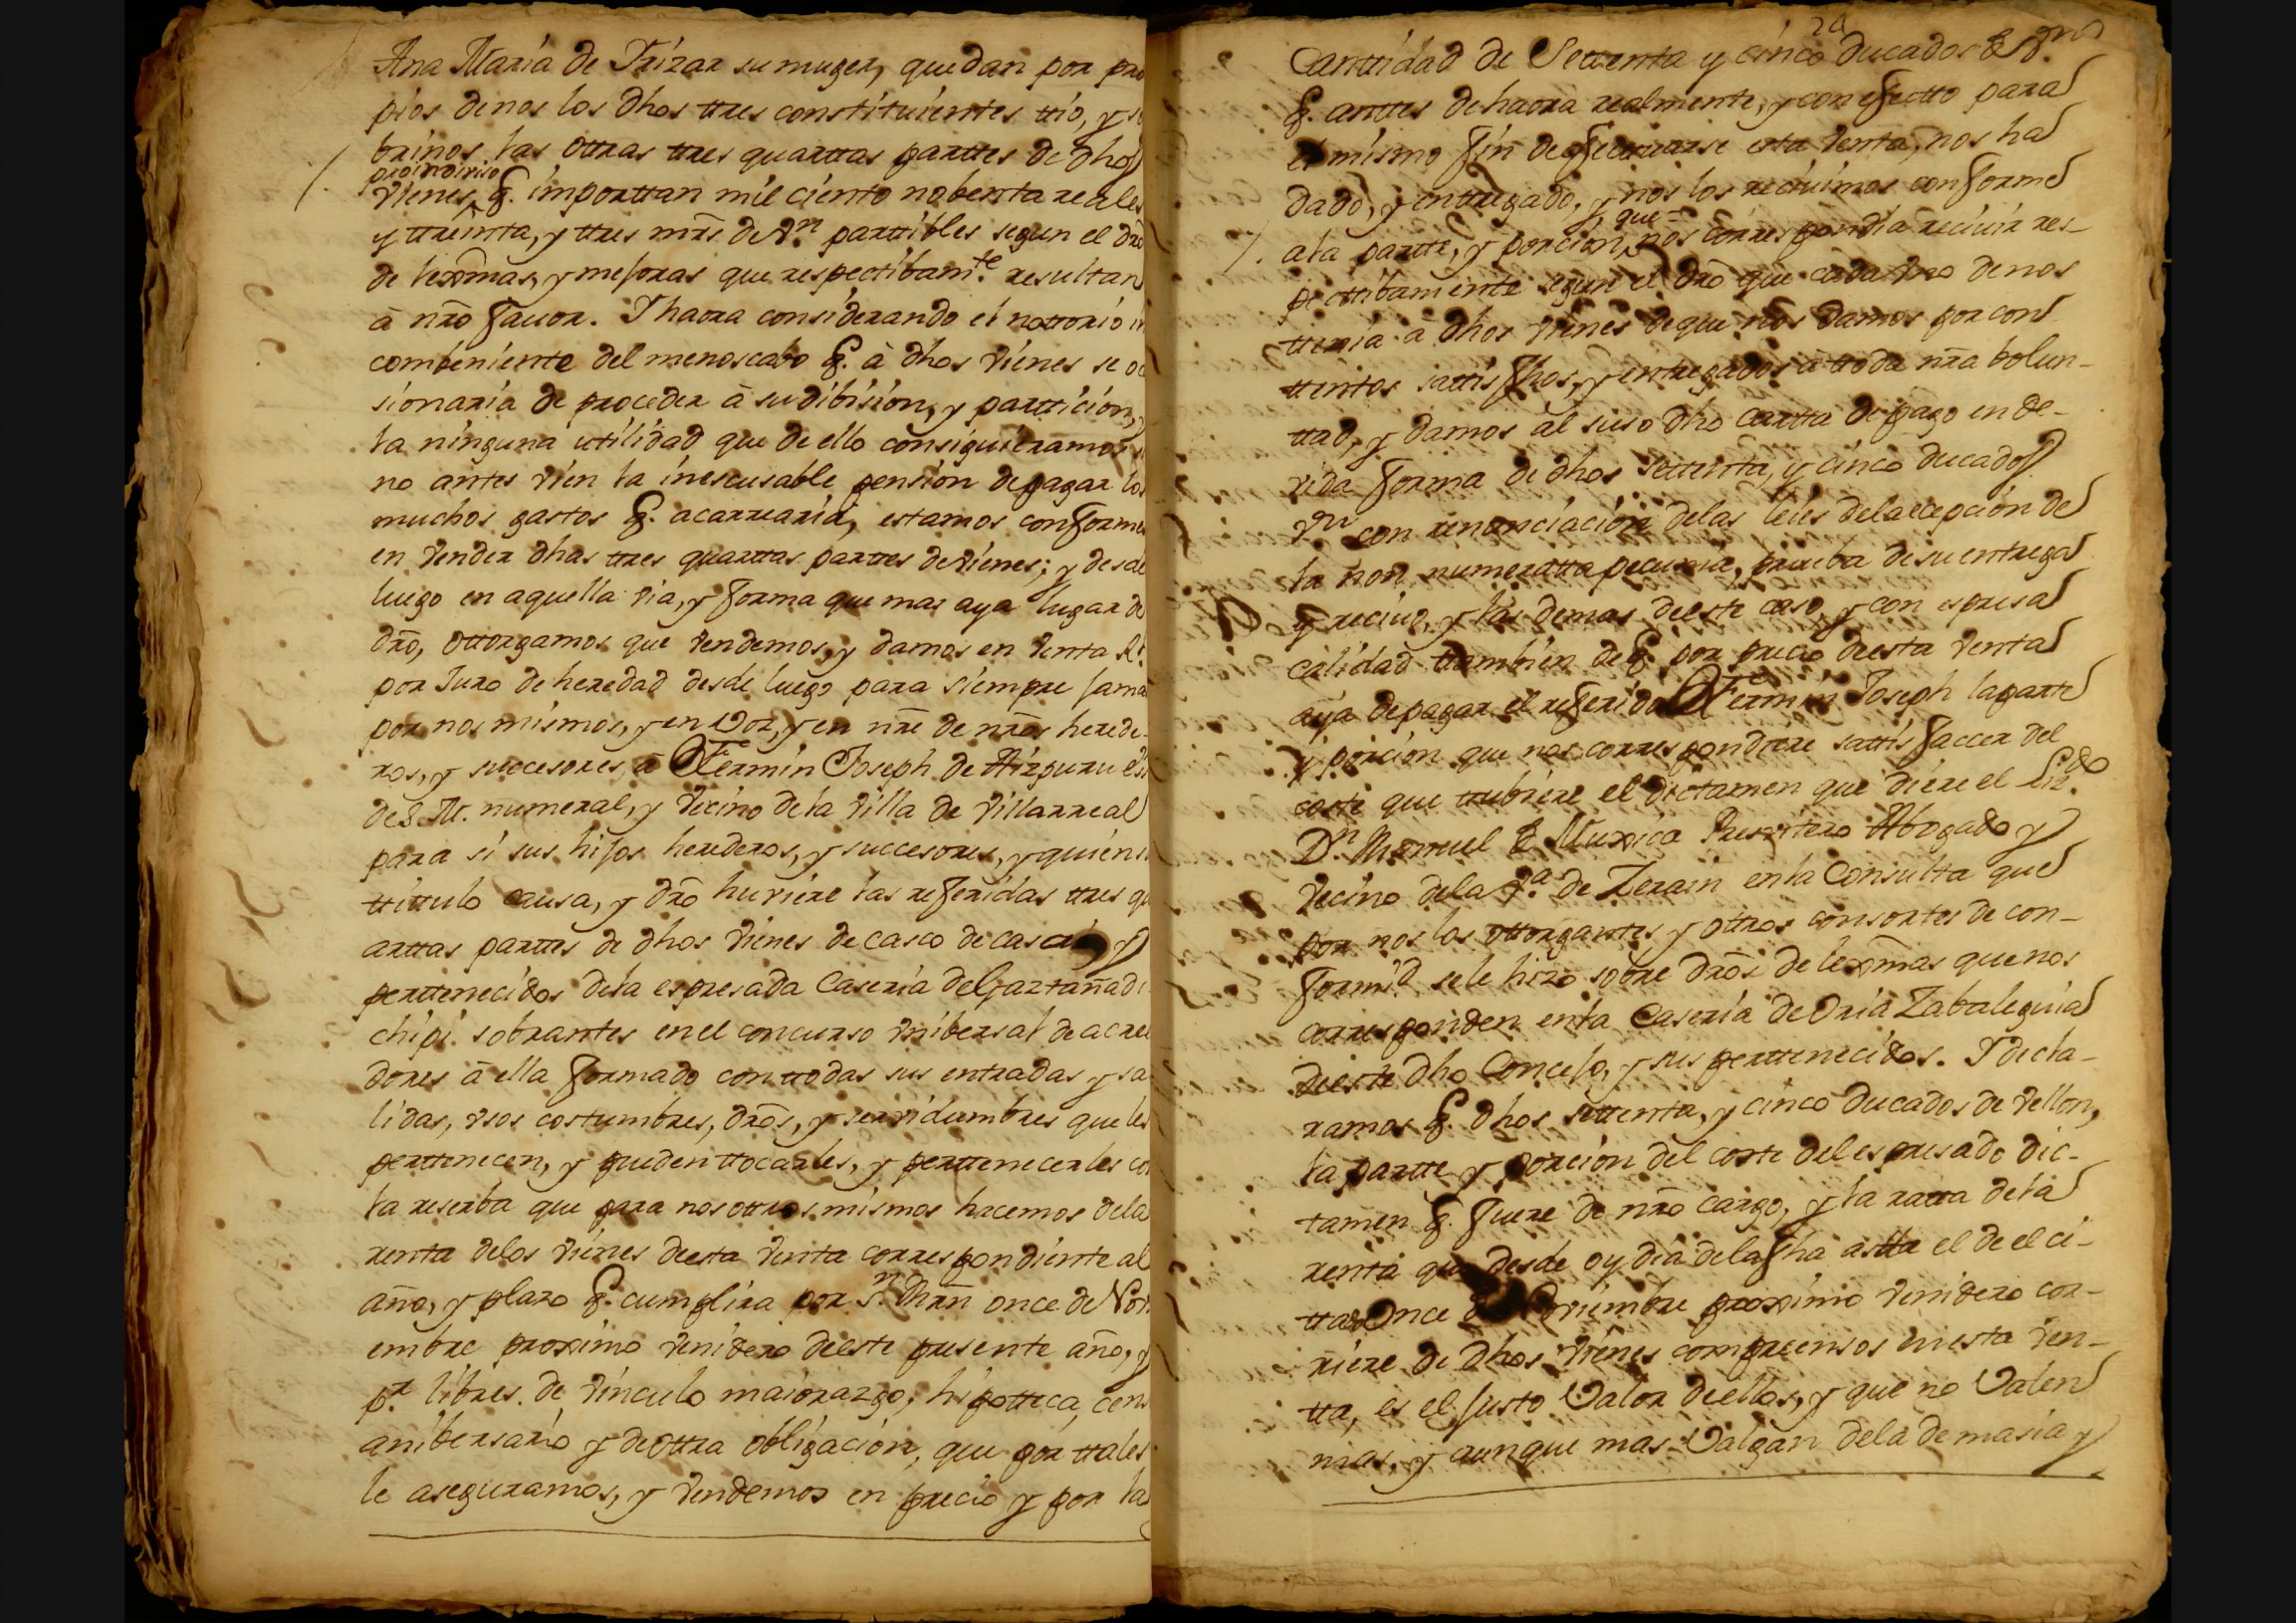 Ana Maria de Irizar su muger, quedan por pro
pios de nos los dhos ttres constituientes ttio, y so
brinos las ottras ttres quarttas parttes de dhos
proindiviso
vienes q. importtan mil ciento nobenta reales
y ttreinta, y ttres mrs de vn parttibles segun el dro
de lexmas, y mejoras que respectibamte resultan
à nro favor. I haora considerando el nottorio in
combeniente del menoscavo q. à dhos vienes se oc
sionaria de proceder à su dibision, y partticion, y
la ninguna utilidad que de ello consiguieramos si
no antes vien la inescusable pension de pagar los
muchos gastos q. acarrearia, estamos conformes
en vender dhas ttres quarttas parttes de vienes; y desde
luego en aquella via, y forma que mas aya lugar de
dro, ottorgamos que vendemos, y damos en venta Rl
por Juro de heredad desde luego para siempre jama
por nos mismos, y en voz, y en nre de nros herede-
ros, y succesores, à Fermin Joseph de Aizpuru es
de S. M. numeral, y vecino de la villa de Villarreal
para si sus hijos herederos, y succesores, y quien su
ttittulo causa, y dro huviere las referidas ttres qu
arttas parttes de dhos vienes de casco de casa y
perttenecidos de la espresada Caseria de Gaztañadi
chipi sobrantes en el concurso vnibersal de acree
dores à ella formado con ttodas sus entradas y sa
lidas, vsos costumbres, dros, y servidumbres que les
perttenecen, y pueden ttocarles, y perttenecerles con
la reserba que para nosottros mismos hacemos de la
renta de los vienes de esta venta correspondiente al
año, y plazo q. cumplira por Sn Mrn once de Nov
embre proximo venidero de este presente año, y
pr libres de vinculo maiorazgo, hipotteca, cens
anibersario y de ottra obligacion, que por ttales
le aseguramos, y vendemos en precio y por la
24
Canttidad de Settenta y cinco ducados de vn
q. anttes de haora realmente, y con efectto para
el mismo fin de efectuarse esta venta, nos ha
dado, y enttregado, y nos los recivimos conforme
que
a la partte, y porcion, nos correspondia recivir res-
pecttibamente segun el dro que cada vno de nos
ttenia à dhos vienes de que nos damos por con
ttenttos sattisfhos, y entregados à ttoda nra bolun-
ttad, y damos al suso dho cartta de pago en de-
vida forma de dhos settenta, y cinco ducados
vn con renunciacion de las leies de la ecepcion de
la non numeratta pecunia, prueba de su entrega
y recivo, y las demas de este caso, y con espresa
calidad ttambien de q. por precio de esta venta
aya de pagar el referido Fermin Joseph la parte
y porcion que nos correspondiere sattisfaccer del
coste que ttubiere el dictamen que diere el Lizdo
Dn Manuel de Muxica Presvitero Abogado y
vecino de la va de Zerain en la Consulta que
por nos los ottorgantes y ottros consortes de con-
formid se le hizo sobre dros de lexmas que nos
corresponden en la Caseria de Oria Zabaleguia
de este dho Concejo, y sus perttenecidos. I decla-
ramos q. dhos settenta, y cinco ducados de vellon,
la partte y porcion del coste del espresado dic-
tamen q. fuere de nro cargo, y la ratta de la
renta que desde oy dia de la fha astta el de el ci-
ttado Once de Noviembre proximo venidero cor-
riere de dhos vienes compreensos en esta ven-
tta, es el justo Valor de ellos, y que no Valen
mas, y aunque mas Valgan de la demasia y